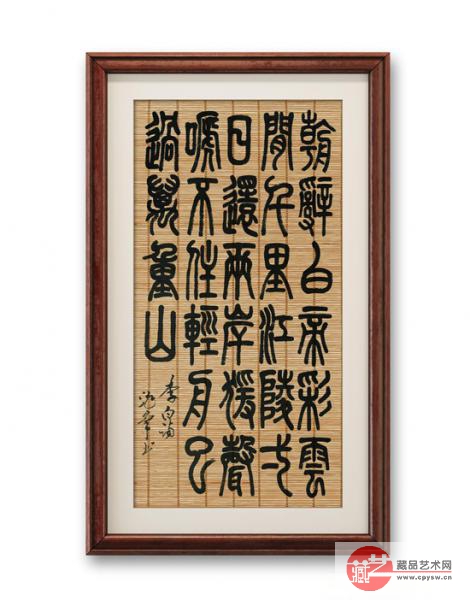 朝辭白帝彩雲
間千里江陵一
日還兩岸猿聲
啼不住輕舟已
過萬重山
李白詩
藏品艺术网
www.cpysw.cn